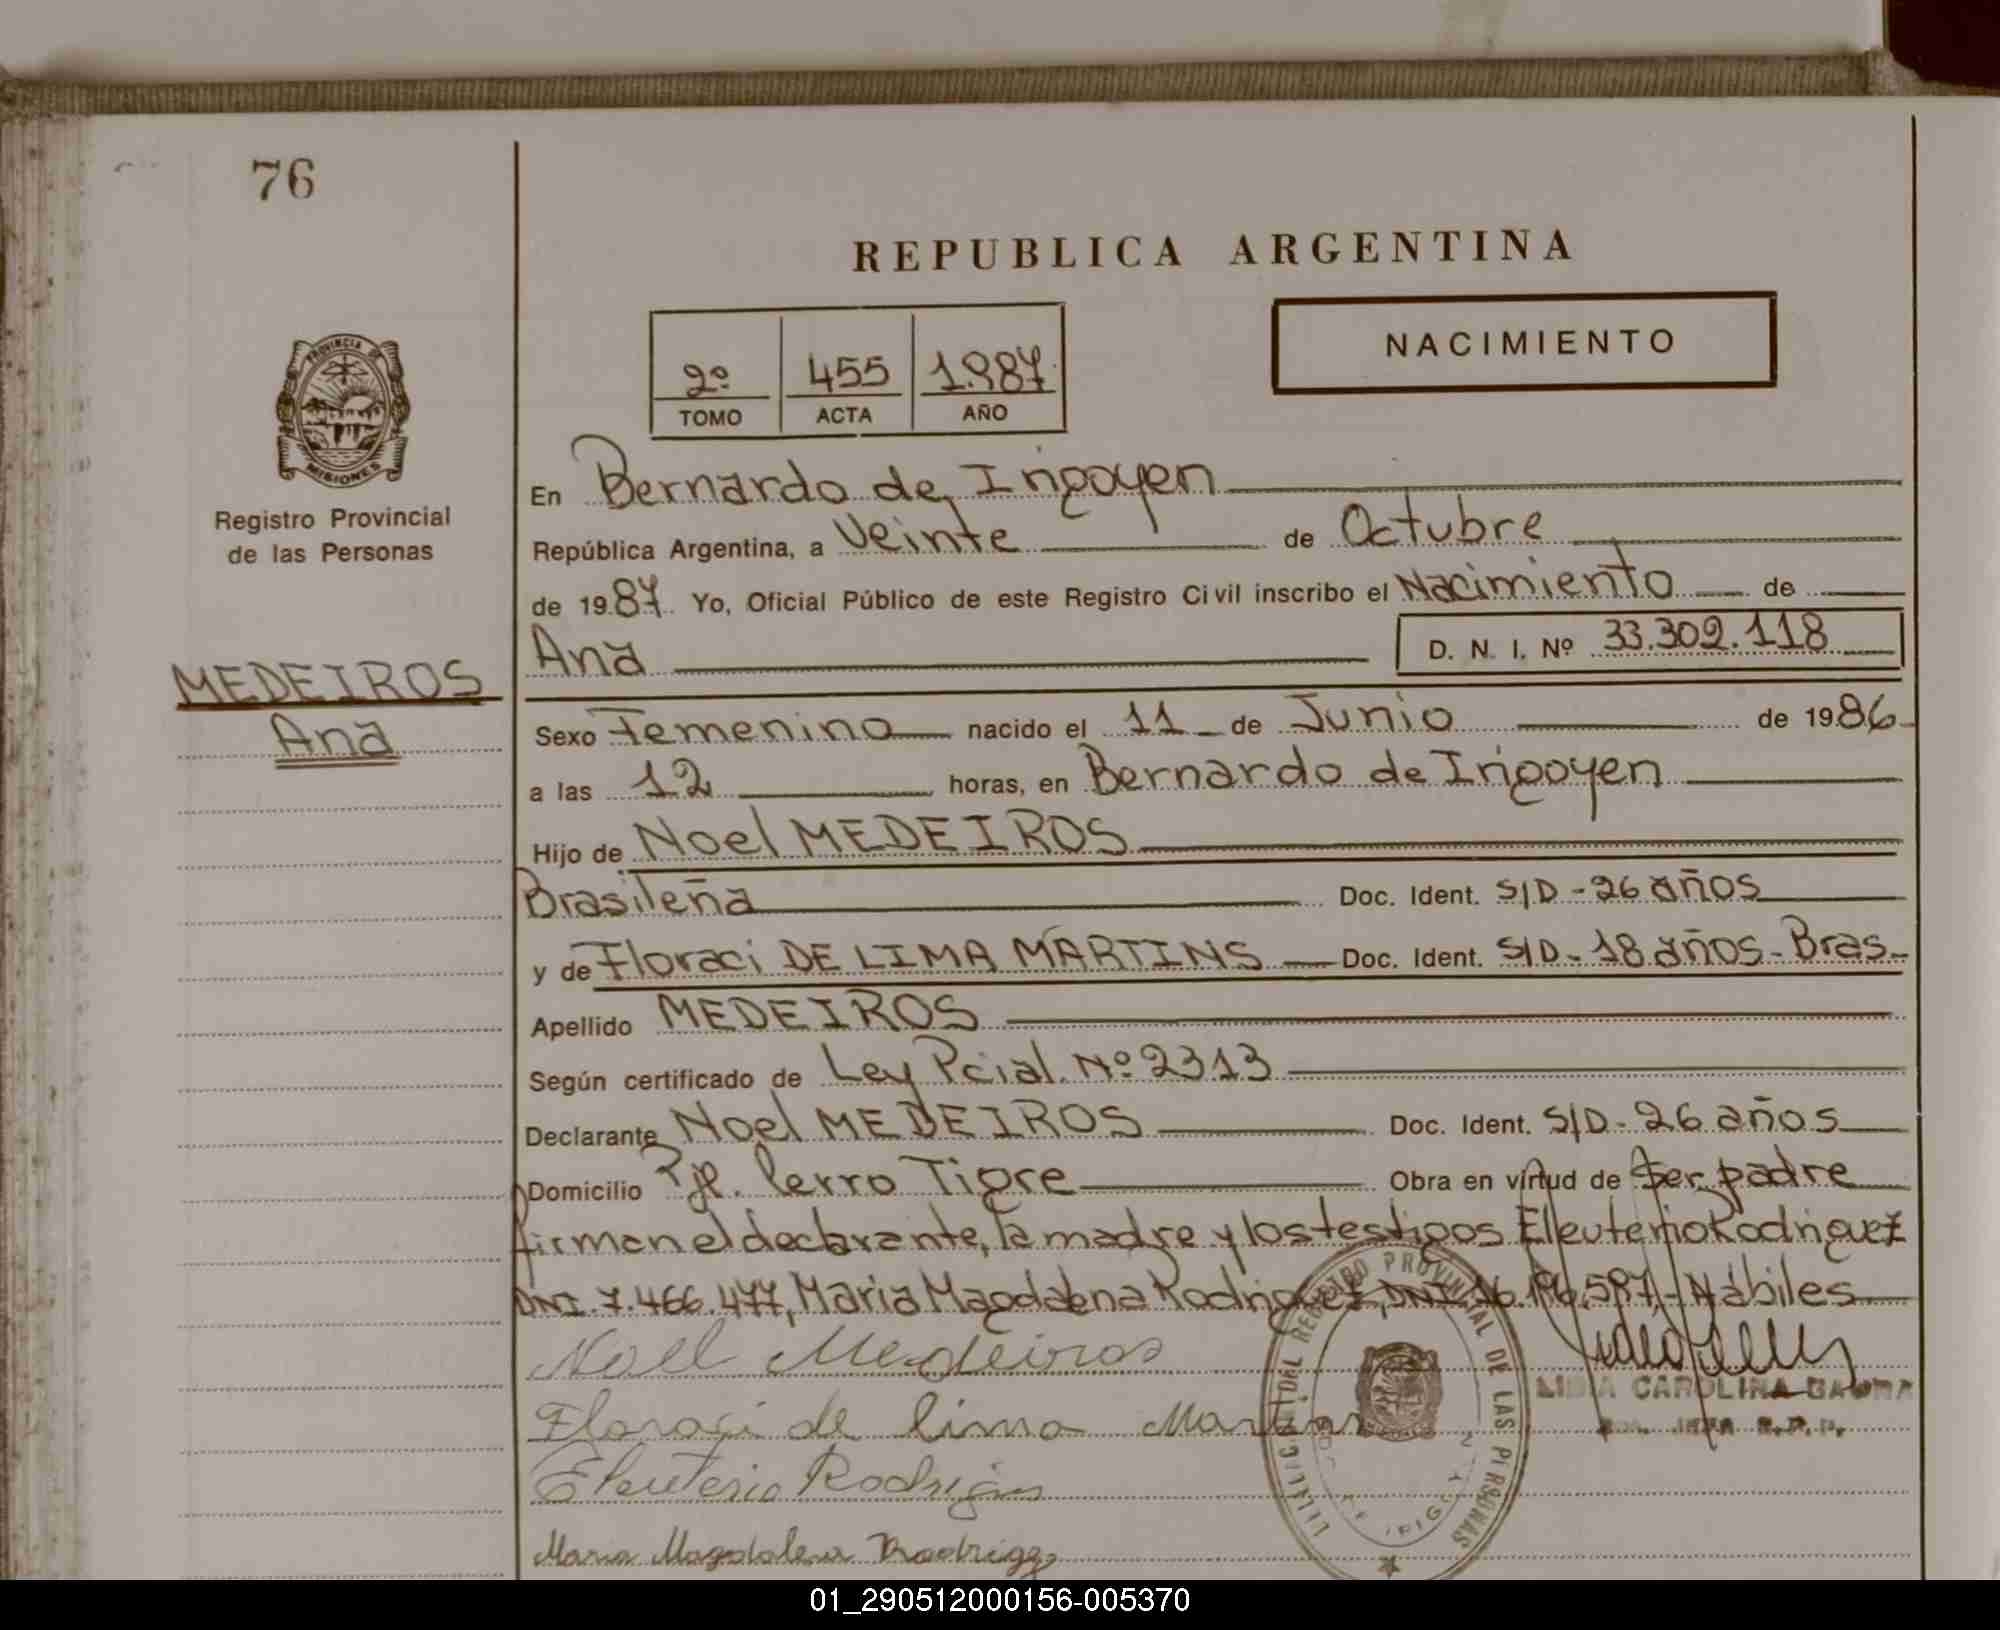 76
REPUBLICA ARGENTINA
NACIMIENTO
2º 455 1.987
TOMO ACTA AÑO
PROVINCIA DE
MISIONES
Registro Provincial
de las Personas
MEDEIROS
Ana
En Bernardo de Irigoyen
República Argentina, a Veinte de Octubre
de 1987. Yo, Oficial Público de este Registro Civil inscribo el Nacimiento de
Ana D. N. I. Nº 33.302.118
Sexo Femenino nacido el 11 de Junio de 1986
a las 12 horas, en Bernardo de Irigoyen
Hijo de Noel MEDEIROS
Brasileña Doc. Ident. S/D - 26 años
y de Floraci DE LIMA MARTINS Doc. Ident. S/D - 18 años - Bras
Apellido MEDEIROS
Según certificado de Ley Pcial. Nº 2313
Declarante Noel MEDEIROS Doc. Ident. S/D - 26 años
Domicilio Pje. Cerro Tigre Obra en virtud de Ser padre
firman el declarante, la madre y los testigos Eleuterio Rodriguez
DNI. 7.466.477, Maria Magdalena Rodriguez, DNI. 16.196.597, - Hábiles
Noel Medeiros
Floraci de lima Martins
Eleuterio Rodrigues
Maria Magdalena Rodrigez
REGISTRO PROVINCIAL DE LAS PERSONAS
CAROLINA
01_290512000156-005370